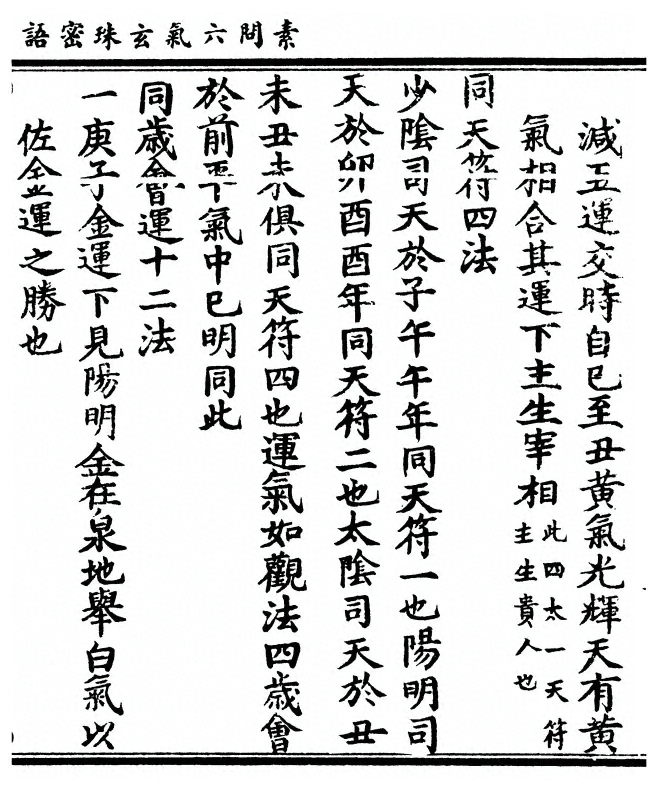 素問六氣玄珠密語
減五運交時自巳至丑黃氣光輝天有黃
氣相合其運下主生宰相此四太一天符主生貴人也
同天符四法
少陰司天於子午午年同天符一也陽明司
天於卯酉酉年同天符二也太陰司天於丑
未丑未俱同天符四也運氣如觀法四歲會
於前平氣中巳明同此
同歲會運十二法
一庚子金運下見陽明金在泉地舉白氣以
佐金運之勝也